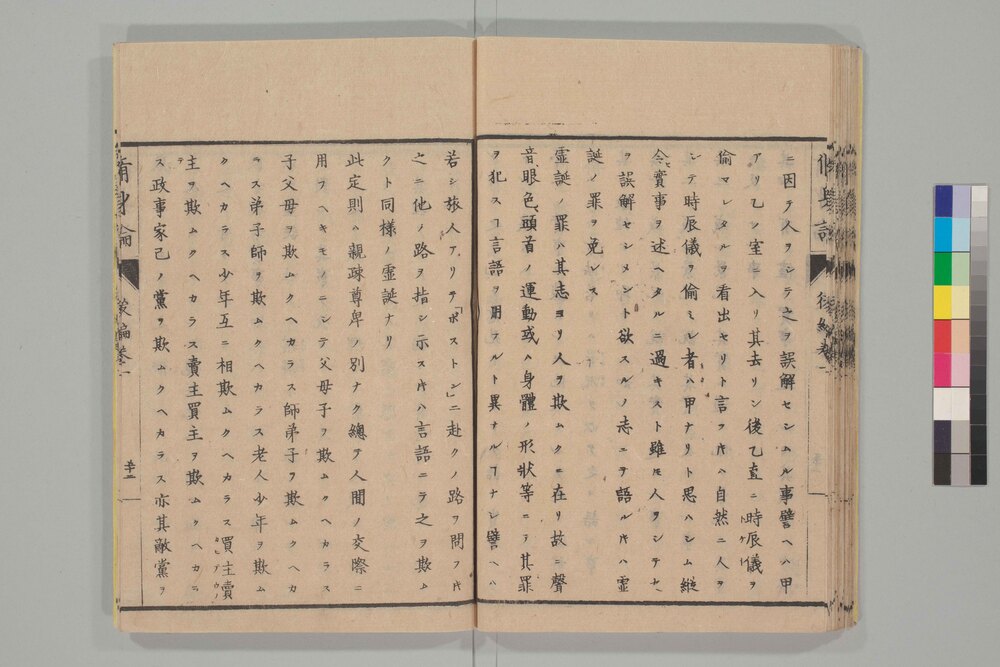 ニ因テ人ヲシテ之ヲ誤解セシムル事譬ヘハ甲
アリ乙ノ室ニ入リ其去リシ後乙直ニ時辰儀ヲ
トケイ
偷マレタルヲ看出セリト言フ𪜈ハ自然ニ人ヲ
シテ時辰儀ヲ偷ミシ者ハ甲ナリト思ハシム縱
令實事ヲ述ヘタルニ過キスト雖𪜈人ヲシテ之
ヲ誤解センメント欲スルノ志ニテ語ル𪜈ハ虛
誕ノ罪ヲ免レス
虛誕ノ罪ハ其志ヨリ人ヲ欺ムクニ在リ故ニ聲
音眼色頭首ノ運動或ハ身體ノ形狀等ニテ其罪
ヲ犯スヿ言語ヲ用フルト異ナルヿナシ譬ヘハ
若シ旅人アリテ「ボストン」ニ赴クノ路ヲ問フ𪜈
之ニ他ノ路ヲ指シ示ス𪜈ハ言語ニテ之ヲ欺ム
クト同樣ノ虛誕ナリ
此定則ハ親疎尊卑ノ別ナク總テ人間ノ交際ニ
用フヘキモノニシテ父母子ヲ欺ムクヘカラス
子父母ヲ欺ムクヘカラス師弟子ヲ欺ムクヘカ
ラス弟子師ヲ欺ムクヘカラス老人少年ヲ欺ム
クヘカラス少年互ニ相欺ムクヘカラス買主賣
主ヲ欺ムクヘカラス賣主買主ヲ欺ムクヘカラ
ス政事家己ノ黨ヲ欺ムクヘカラス亦其敵黨ヲ
脩身論
後編卷一